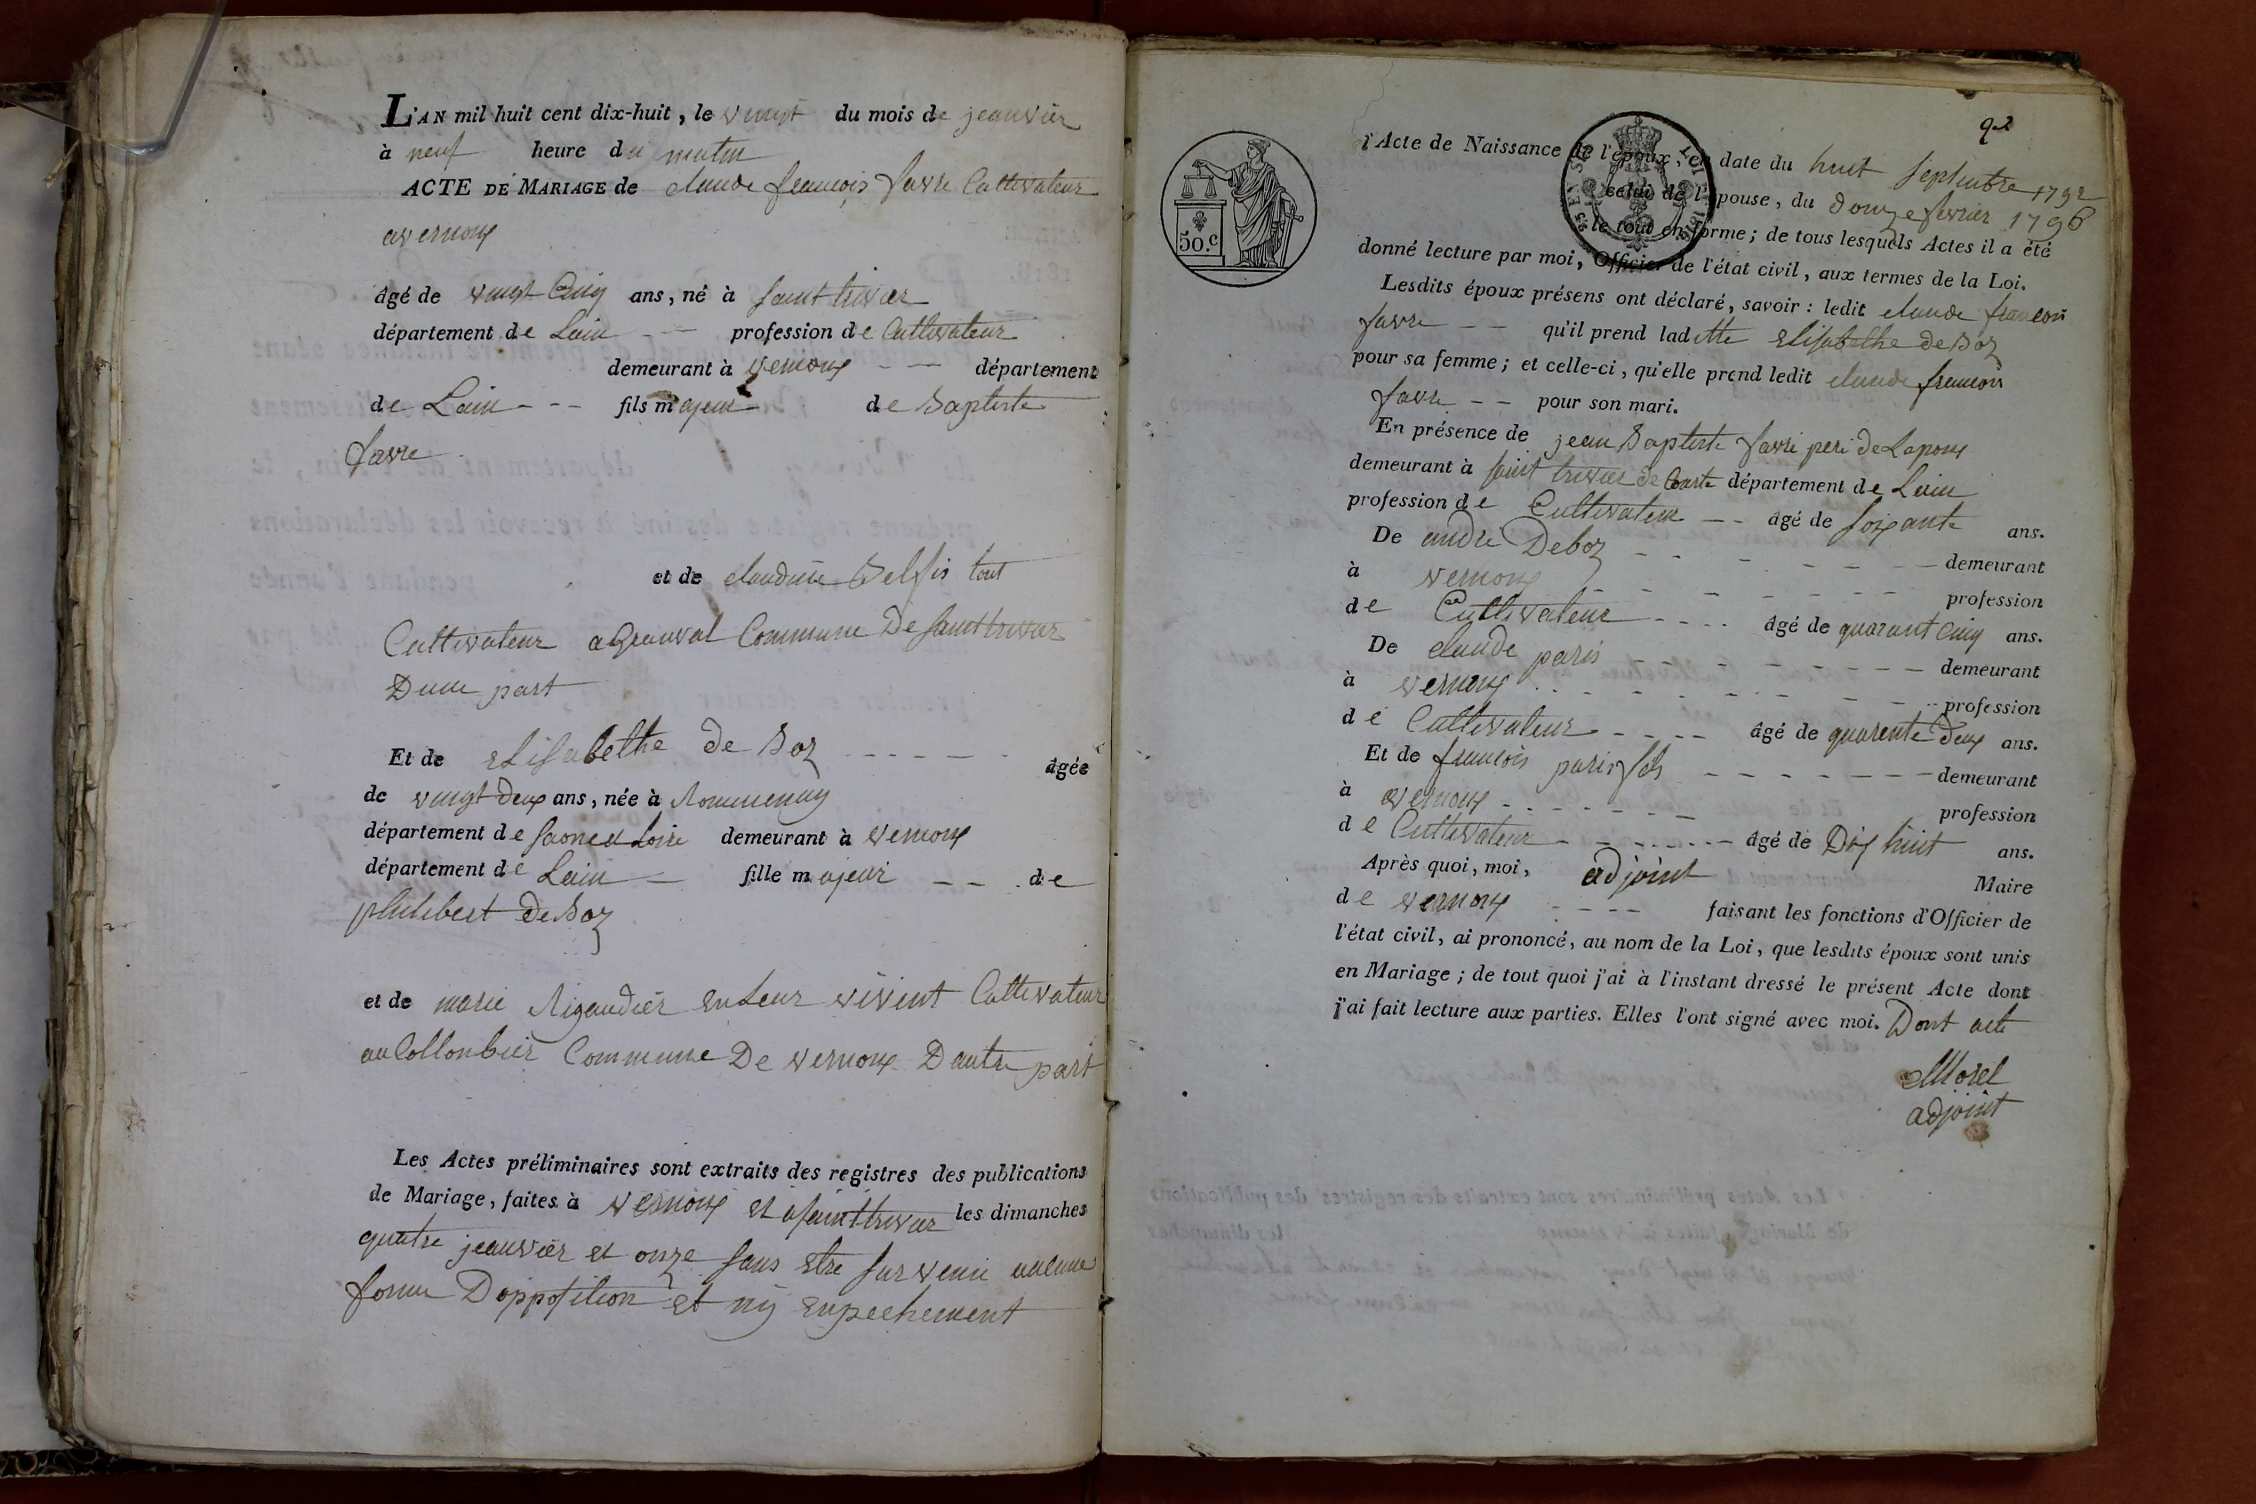 L'AN mil huit cent dix-huit, le vingt du mois de jeanvier
à neuf heure du matin
ACTE DE MARIAGE de claude francois favre Cultivateur
avernoux
âgé de vingt Cinq ans, né à saint trivier
département de Lain profession de Cultivateur
demeurant à vernoux département
de Lain fils majeur de Baptiste
favre
et de claudine tout
Cultivateur a Grauval Commune De saint trivier
Dune part
Et de Elisabethe de Boz âgée
de vingt deux ans, née à Rommenay
département de saone et Loire demeurant à vernoux
département de Lain fille majeur de
philibert De Boz
et de marie Rigaudier en Leur vivent Cultivateur
au Collonbier Commune De vernoux Dautre part
Les Actes préliminaires sont extraits des registres des publications
de Mariage, faites à vernoux et a saint trivier les dimanches
quatre jeanvier et onze sans estre survenu aucune
forme Dopposition et ny enpechement
2
50.c
l'Acte de Naissance de l'époux, en date du huit septembre 1792
celui de l'épouse, du douze fevrier 1796
le tout en forme; de tous lesquels Actes il a été
donné lecture par moi, Officier de l'état civil, aux termes de la Loi.
Lesdits époux présens ont déclaré, savoir : ledit claude francois
favre qu'il prend laditte Elisabethe de Boz
pour sa femme; et celle-ci, qu'elle prend ledit claude francois
favre pour son mari.
En présence de jean Baptiste favre pere de Lepoux
demeurant à saint trivier de Courte département de Lain
profession de Cultivateur âgé de soixante ans.
De andré Deboz demeurant
à vernoux profession
de Cultivateur âgé de quarant cinq ans.
De claude paris demeurant
à vernoux profession
de Cultivateur âgé de quarente deux ans.
Et de francois paris fils demeurant
à vernoux profession
de Cultivateur âgé de Dix huit ans.
Après quoi, moi, adjoint Maire
de vernoux faisant les fonctions d'Officier de
l'état civil, ai prononcé, au nom de la Loi, que lesdits époux sont unis
en Mariage; de tout quoi j'ai à l'instant dressé le présent Acte dont
j'ai fait lecture aux parties. Elles l'ont signé avec moi. Dont acte
Morel
adjoint